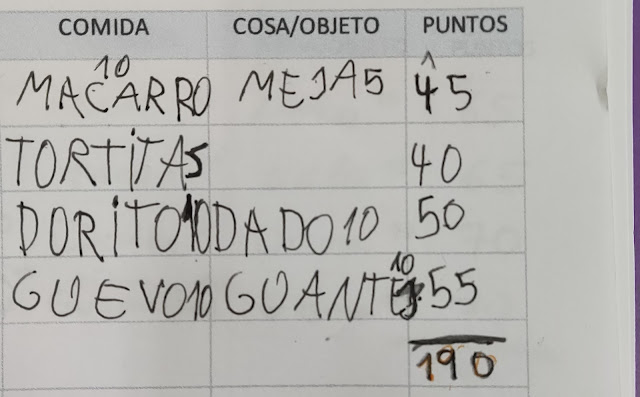 COMIDA COSA/OBJETO PUNTOS
MACARRO 10 MEJA 5 45
TORTITA 5 40
DORITO 10 DADO 10 50
GUEVO 10 GUANTE 10 55
190